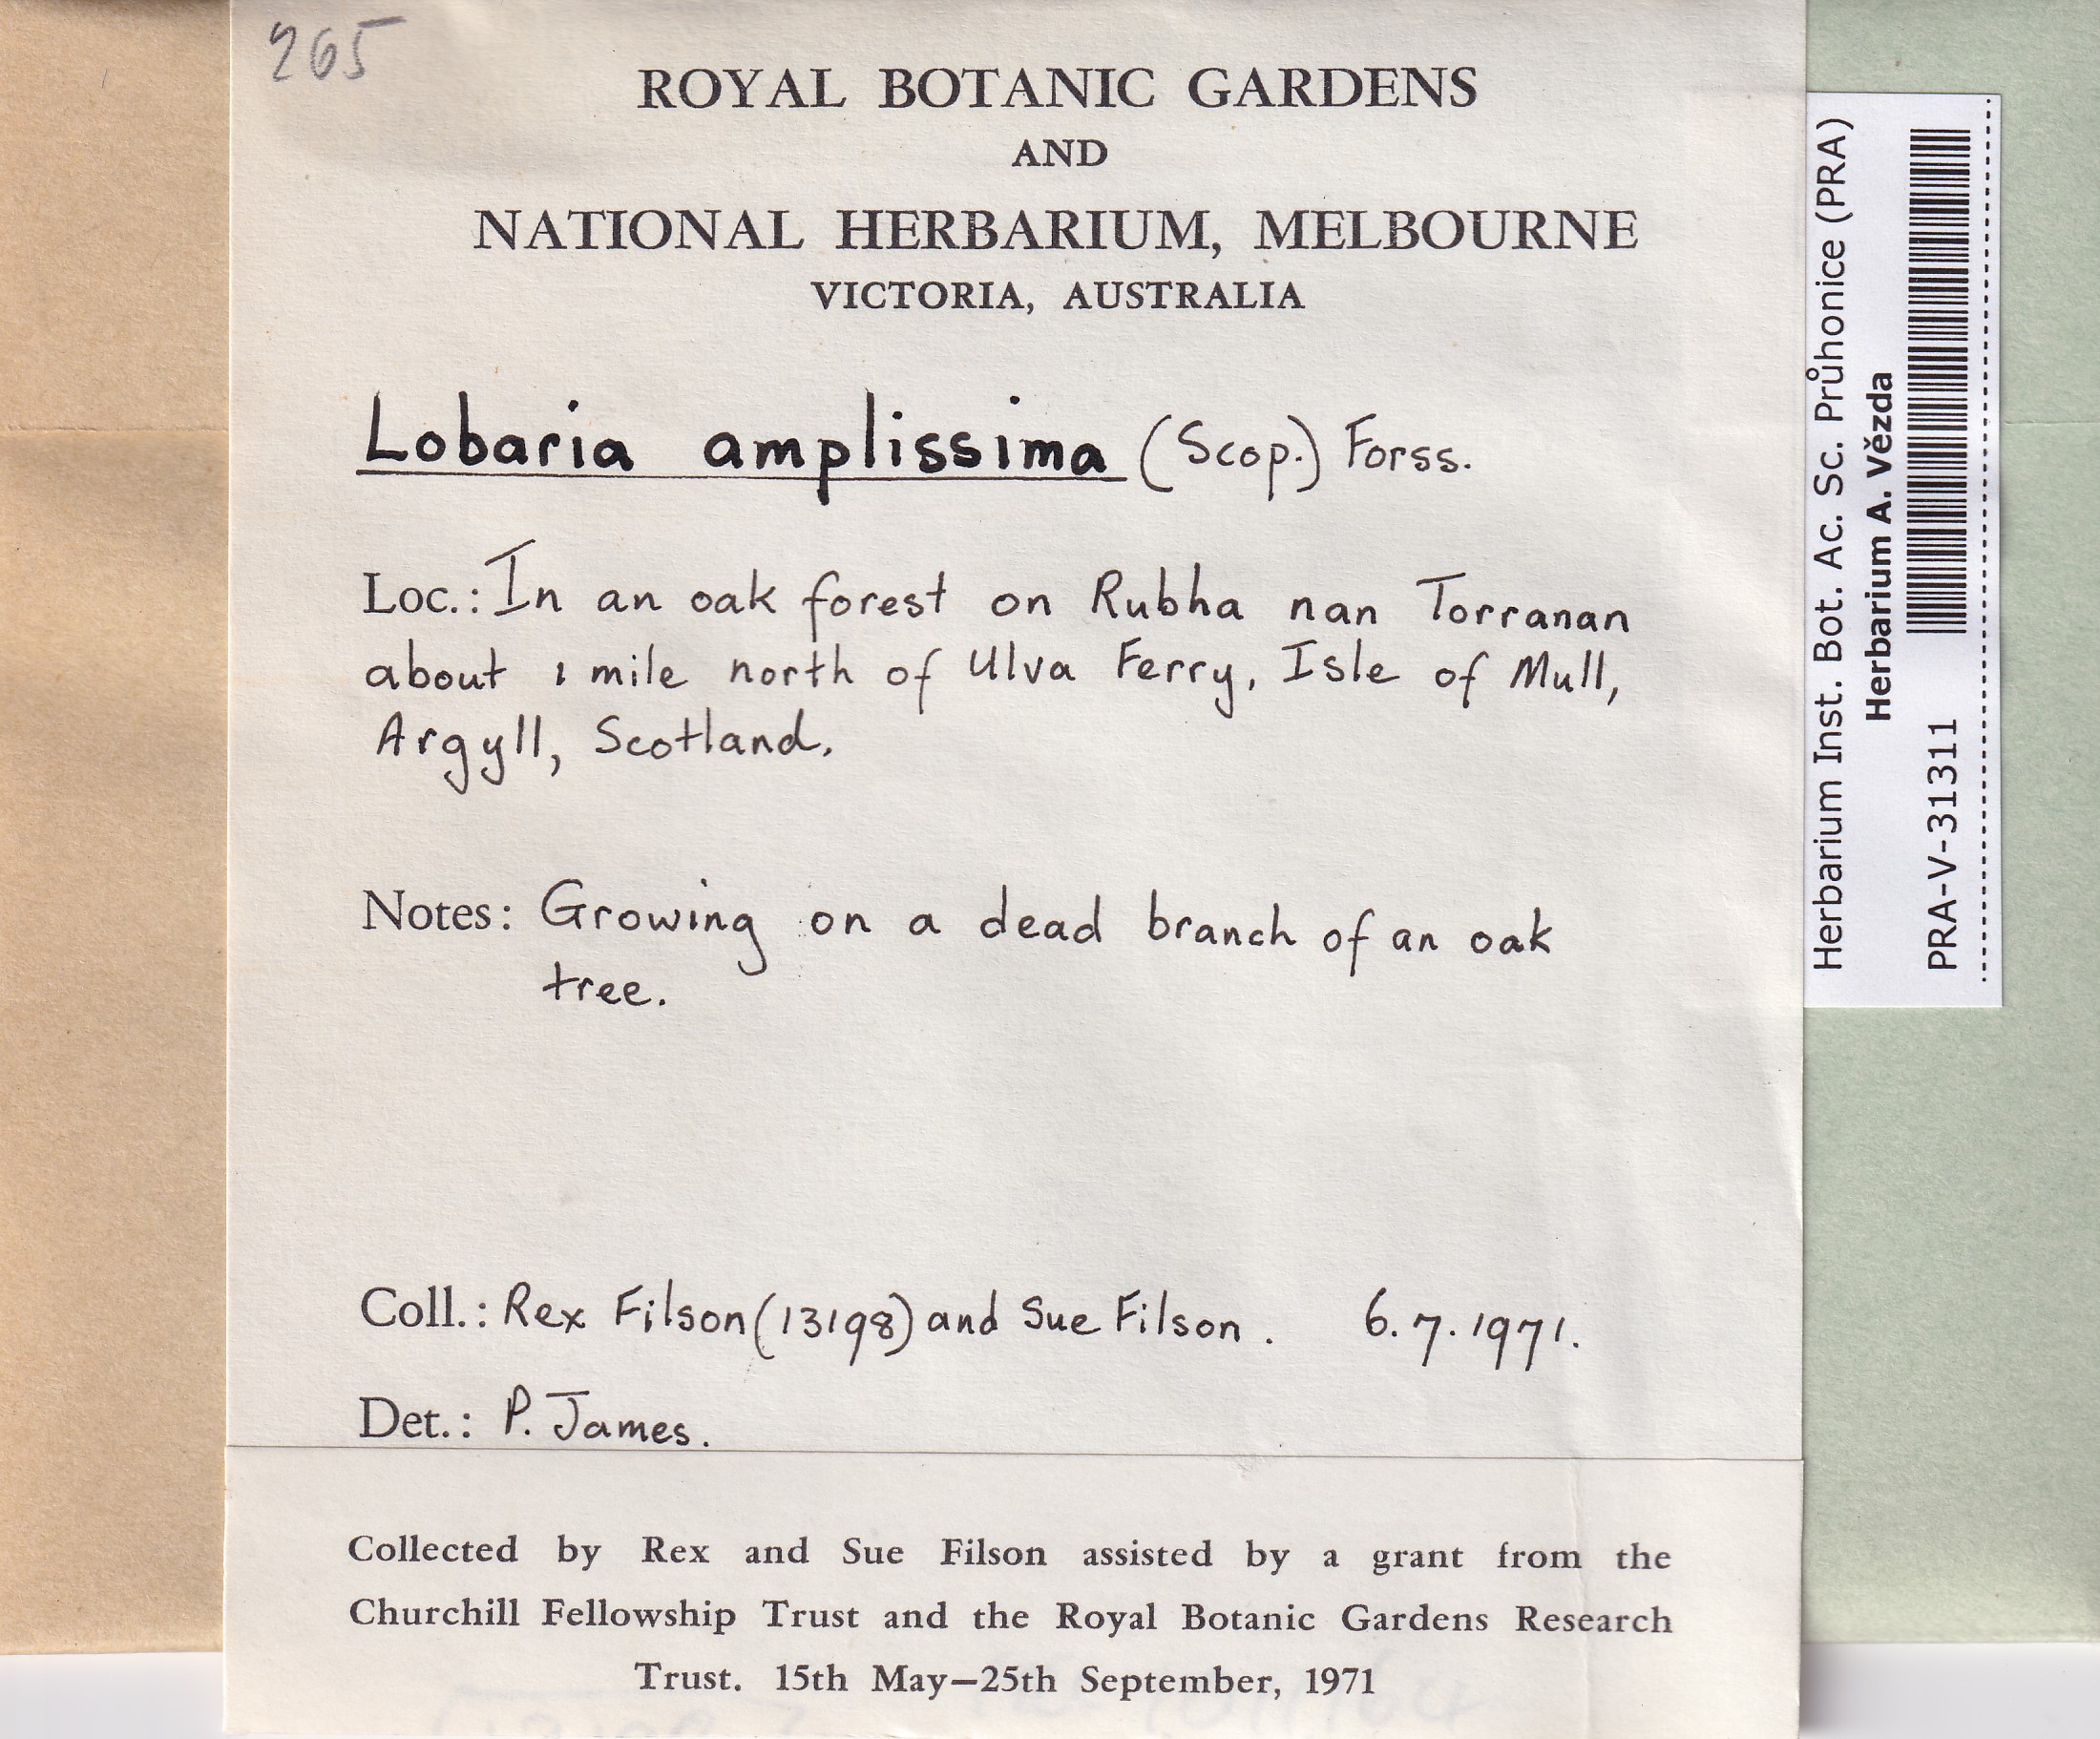 265
ROYAL BOTANIC GARDENS
AND
NATIONAL HERBARIUM, MELBOURNE
VICTORIA, AUSTRALIA
Lobaria amplissima (Scop.) Forss.
Loc.: In an oak forest on Rubha nan Torranan
about 1 mile north of Ulva Ferry, Isle of Mull,
Argyll, Scotland.
Notes: Growing on a dead branch of an oak
tree.
Coll.: Rex Filson (13198) and Sue Filson. 6.7.1971.
Det.: P. James.
Collected by Rex and Sue Filson assisted by a grant from the
Churchill Fellowship Trust and the Royal Botanic Gardens Research
Trust. 15th May—25th September, 1971
Herbarium Inst. Bot. Ac. Sc. Průhonice (PRA)
Herbarium A. Vězda
PRA-V-31311